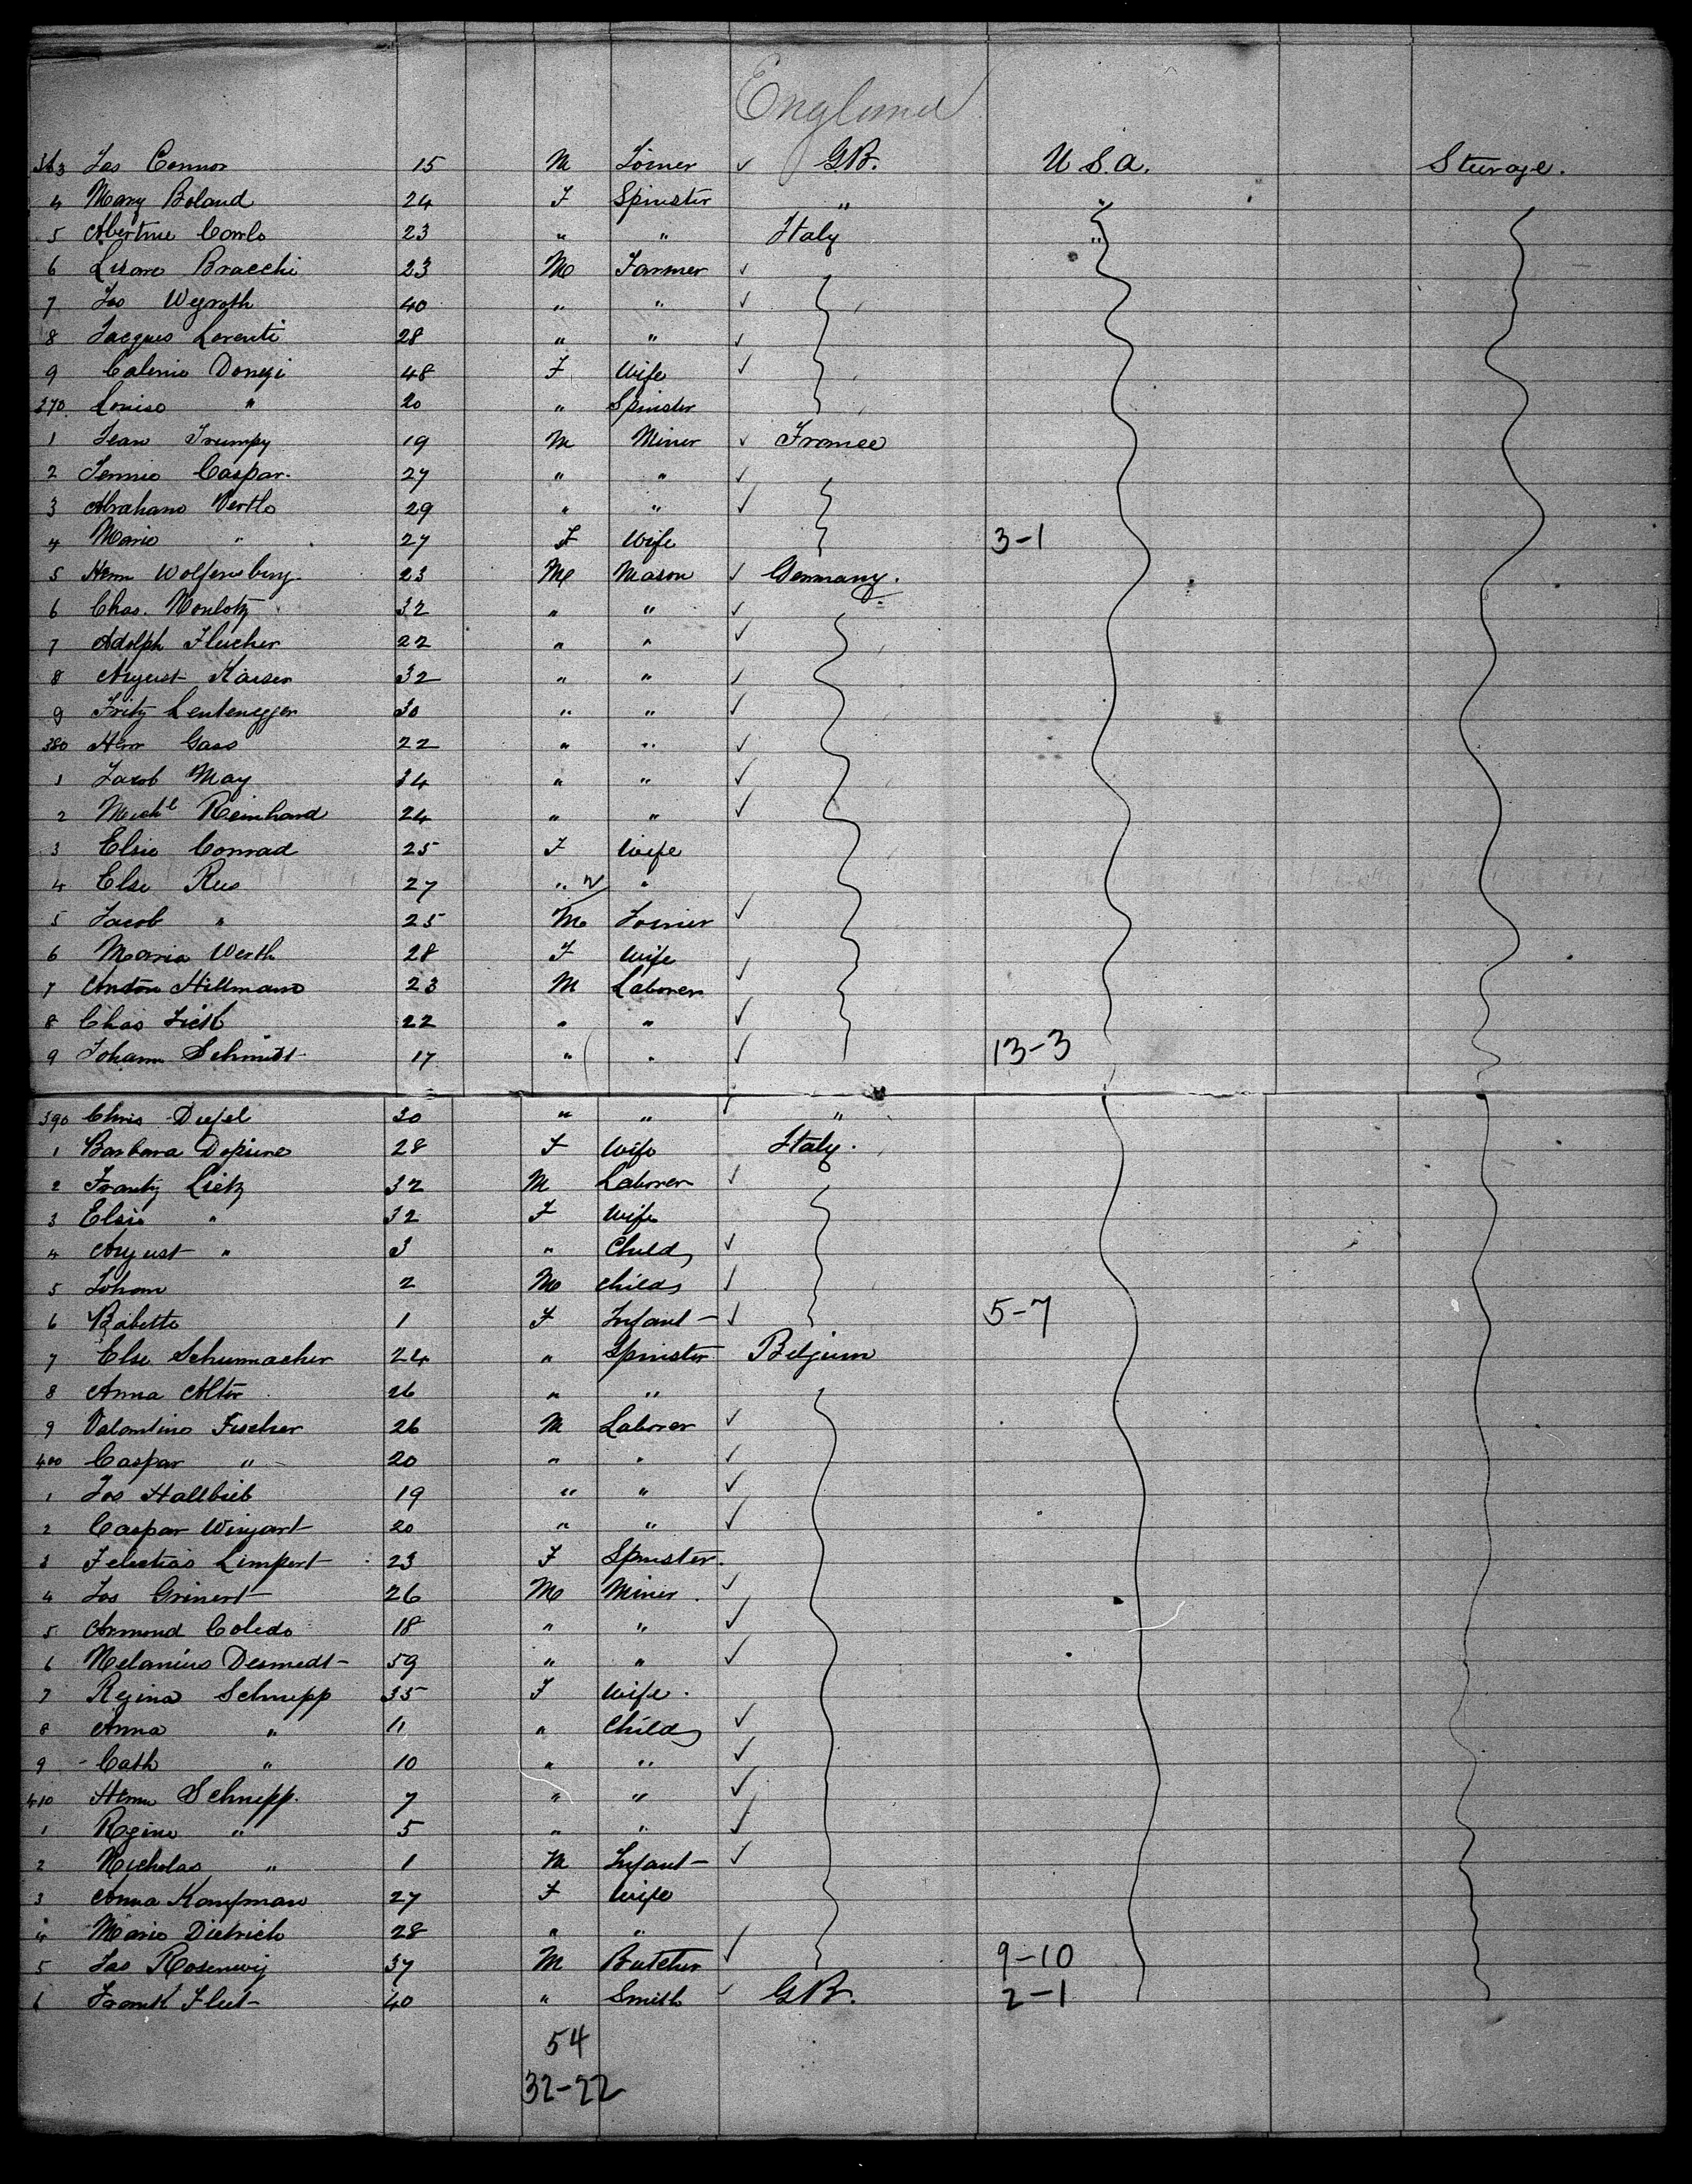 England
363 Jas Connor 15 M Joiner ✓ G.B. U.S.A. Steerage.
4 Mary Boland 24 F Spinster " "
5 Abertine Carlo 23 " " Italy "
6 Bracchi 23 M Farmer ✓
7 Jos Weyroth 40 " " ✓
8 Jacques Lorenti 28 " " ✓
9 Donezi 48 F Wife ✓
370 Louise " 20 " Spinster
1 Jean Trumpy 19 M Miner ✓ France
2 Caspar. 27 " " ✓
3 Abraham Vertlo 29 " " ✓
4 Marie " 27 F Wife 3-1
5 Herm Wolfensburg. 23 M Mason ✓ Germany.
6 Chas. 32 " " ✓
7 Adolph Flucher 22 " " ✓
8 August Kaiser 32 " " ✓
9 Fritz Leutenegger 30 " " ✓
380 Herm Gass 22 " " ✓
1 Jacob May 34 " " ✓
2 Michl Reinhard 24 " " ✓
3 Elsie Conrad 25 F Wife
4 Else Rus 27 " "
5 Jacob " 25 M Joiner ✓
6 Maria Werth 28 F Wife
7 Anton Hillmann 23 M Laborer ✓
8 Chas 22 " " ✓
9 Johann Schmidt 17 " " ✓ 13-3
390 Chris Diefel 30 " " ✓ "
1 Barbara 28 F Wife Italy.
2 Frantz Lietz 32 M Laborer ✓
3 Elsie " 32 F Wife
4 August " 3 " Child ✓
5 Johann 2 M child ✓
6 Babette 1 F Infant ✓ 5-7
7 Else Schumacher 24 " Spinster Belgium
8 Anna Alter 26 " "
9 Valentine Fischer 26 M Laborer ✓
400 Caspar " 20 " " ✓
1 Jos Hallbieb 19 " " ✓
2 Caspar Wingart 20 " " ✓
3 Felictias Limpert 23 F Spinster.
4 Jos Grinert 26 M Miner. ✓
5 Armond Coledo 18 " " ✓
6 Melanius Desmedt 59 " " ✓
7 Regina Schnepp 35 F Wife.
8 Anna " 11 " Child ✓
9 Cath " 10 " " ✓
410 Herm Schnepp. 7 " " ✓
1 Regine " 5 " " ✓
2 Nicholas " 1 M Infant ✓
3 Anna Kaufman 27 F Wife
4 Marie Dietrich 28 " "
5 Jas Rosenwig 37 M Butcher ✓ 9-10
6 Frank Fleet 40 " Smith ✓ G.B. 2-1
54
32-22